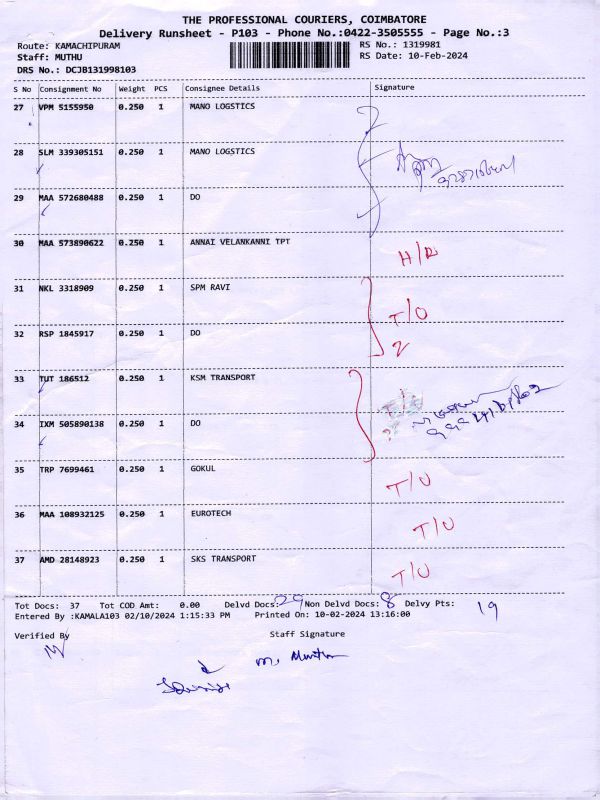 THE PROFESSIONAL COURIERS, COIMBATORE
Delivery Runsheet - P103 - Phone No.:0422-3505555 - Page No.:3
Route: KAMACHIPURAM RS No.: 1319981
Staff: MUTHU RS Date: 10-Feb-2024
DRS No.: DCJB131998103
S No Consignment No Weight PCS Consignee Details Signature
27 VPM 5155950 0.250 1 MANO LOGSTICS
28 SLM 339305151 0.250 1 MANO LOGSTICS
29 MAA 572680488 0.250 1 DO
30 MAA 573890622 0.250 1 ANNAI VELANKANNI TPT
H/D
31 NKL 3318909 0.250 1 SPM RAVI
T/O
32 RSP 1845917 0.250 1 DO
2
33 TUT 186512 0.250 1 KSM TRANSPORT
34 IXM 505890138 0.250 1 DO
35 TRP 7699461 0.250 1 GOKUL
T/U
36 MAA 108932125 0.250 1 EUROTECH
T/U
37 AMD 28148923 0.250 1 SKS TRANSPORT
T/U
Tot Docs: 37 Tot COD Amt: 0.00 Delvd Docs: 29 Non Delvd Docs: 8 Delvy Pts: 19
Entered By :KAMALA103 02/10/2024 1:15:33 PM Printed On: 10-02-2024 13:16:00
Verified By Staff Signature
m. Muthu